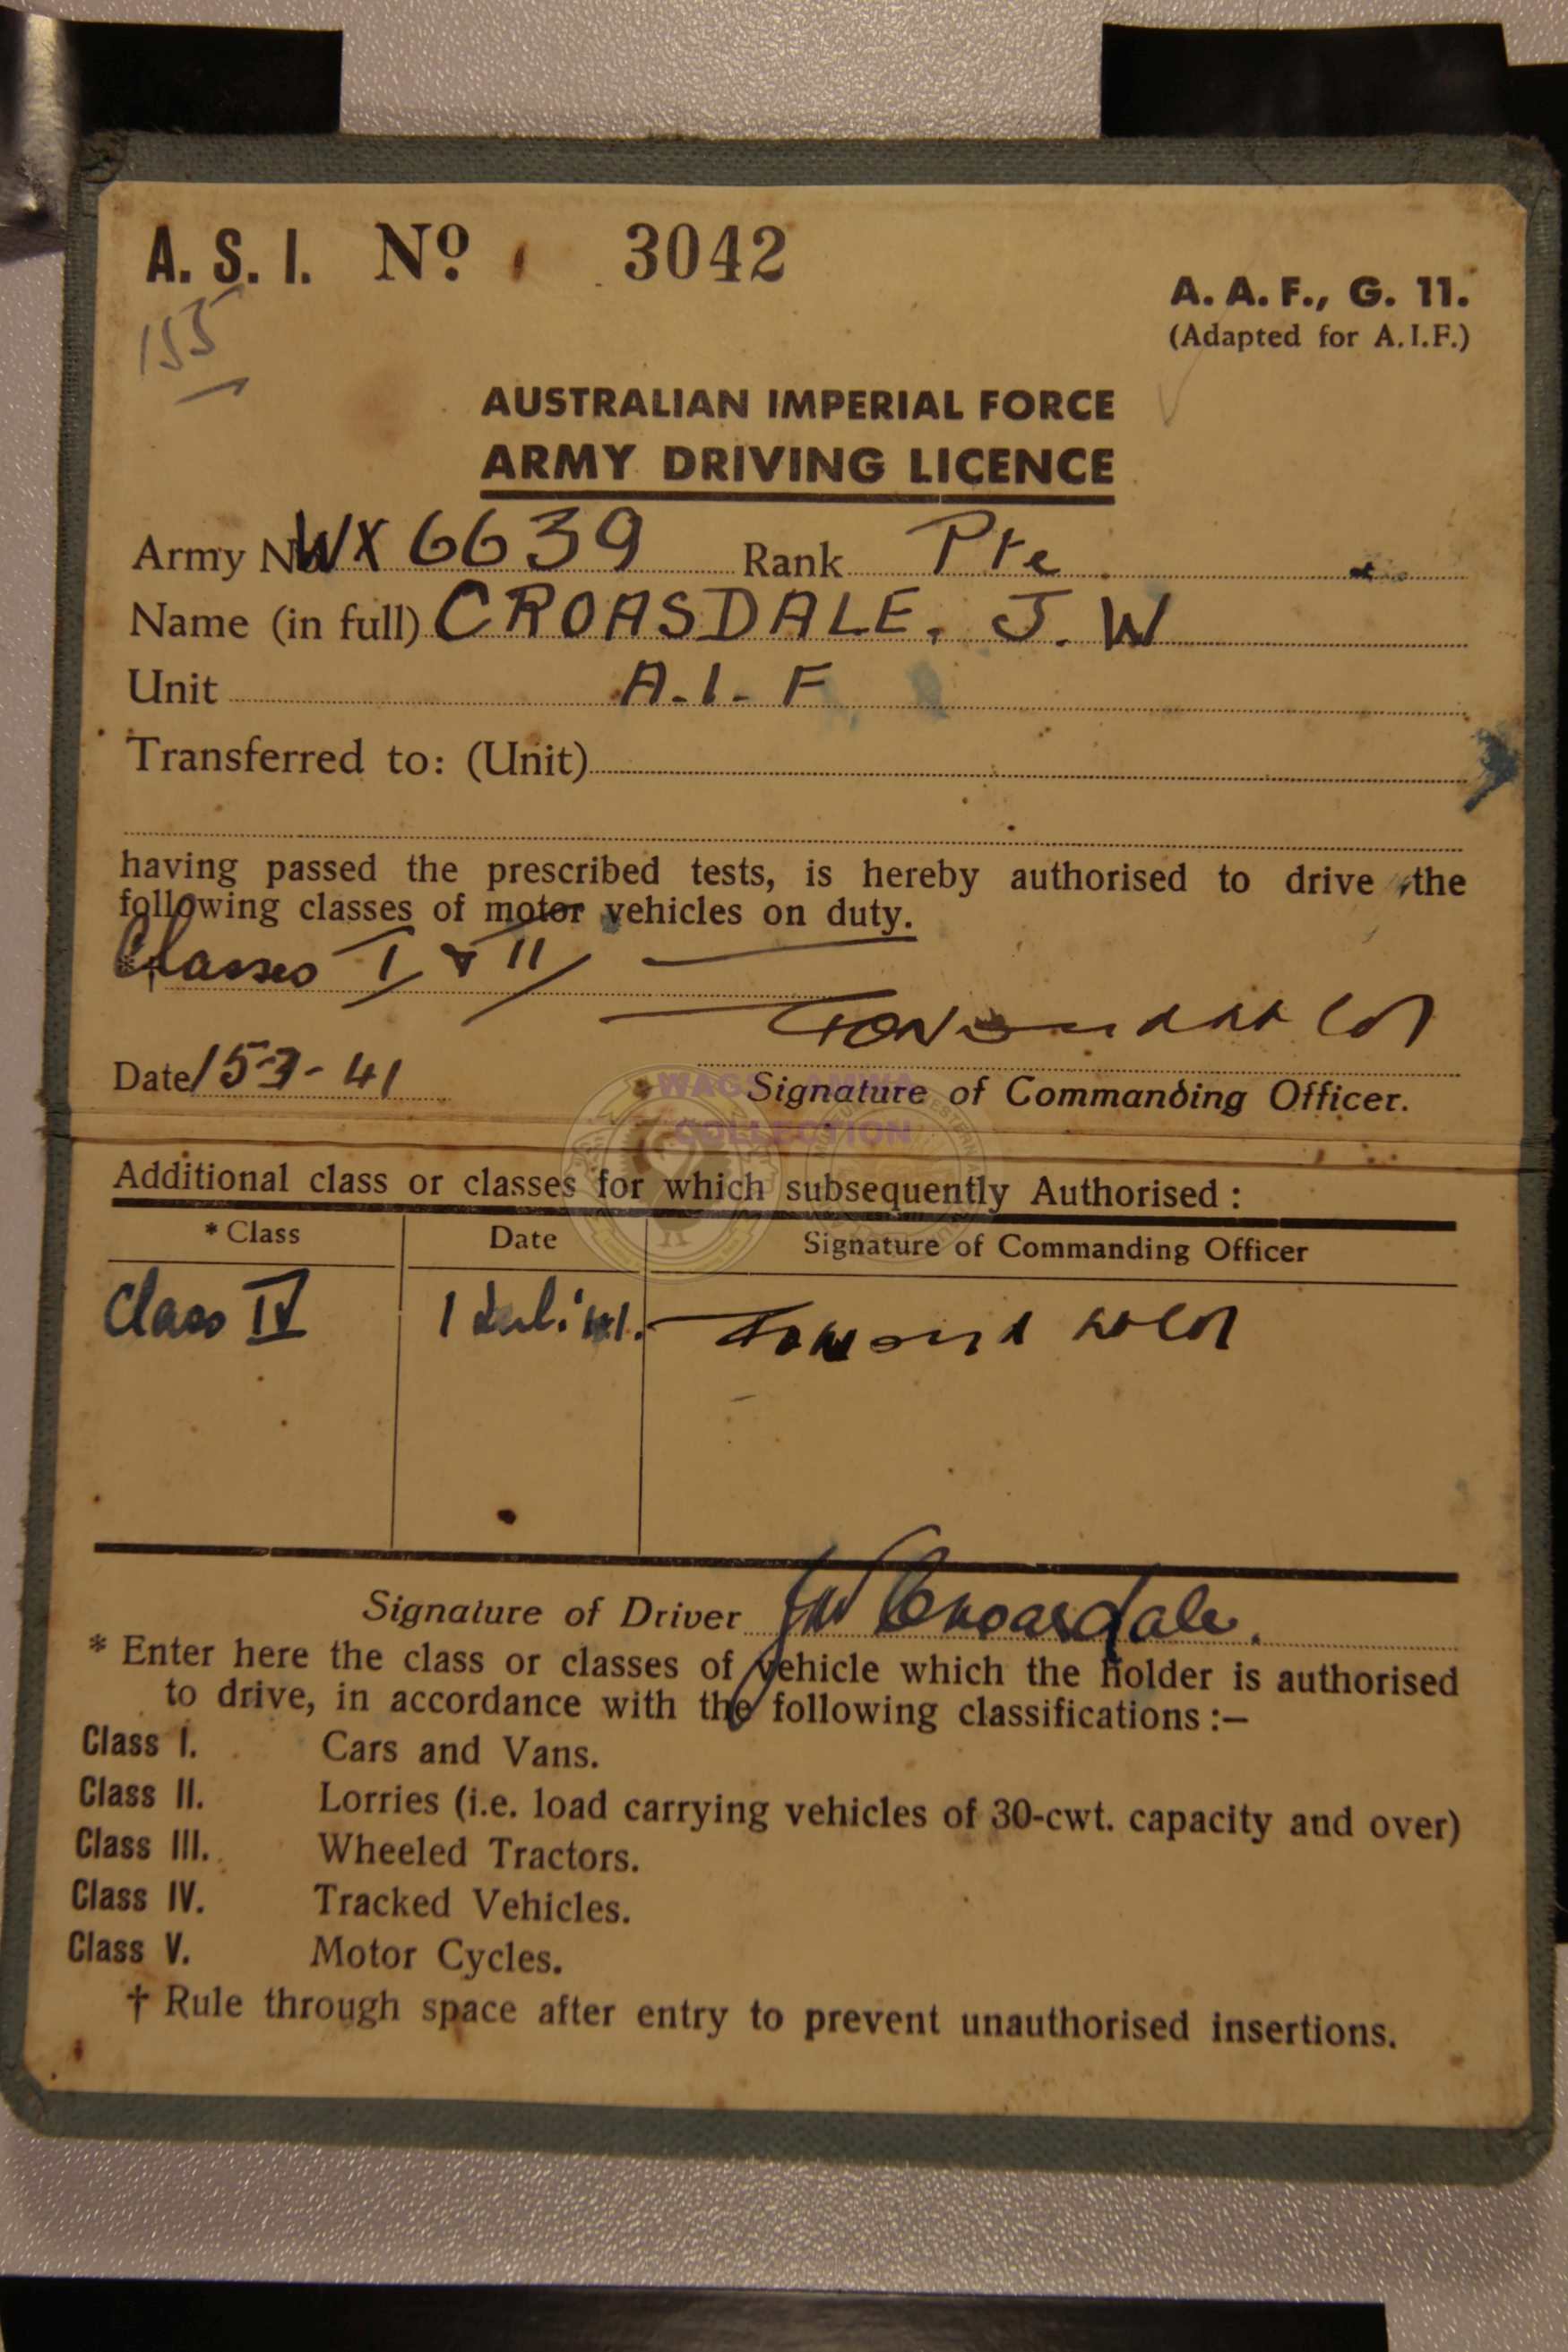 A. S. I. Nº 3042
155
A. A. F., G. 11.
(Adapted for A.I.F.)
AUSTRALIAN IMPERIAL FORCE
ARMY DRIVING LICENCE
Army No WX 6639 Rank Pte
Name (in full) CROASDALE. J. W
Unit A.I.F
Transferred to: (Unit)
having passed the prescribed tests, is hereby authorised to drive the
following classes of motor vehicles on duty.
*† Classes I & II
Date 15-3-41
Signature of Commanding Officer.
WAGS AMWA
COLLECTION
Additional class or classes for which subsequently Authorised :
* Class Date Signature of Commanding Officer
Class IV 1 41.
Signature of Driver JW Croasdale.
* Enter here the class or classes of vehicle which the holder is authorised
to drive, in accordance with the following classifications :—
Class I. Cars and Vans.
Class II. Lorries (i.e. load carrying vehicles of 30-cwt. capacity and over)
Class III. Wheeled Tractors.
Class IV. Tracked Vehicles.
Class V. Motor Cycles.
† Rule through space after entry to prevent unauthorised insertions.